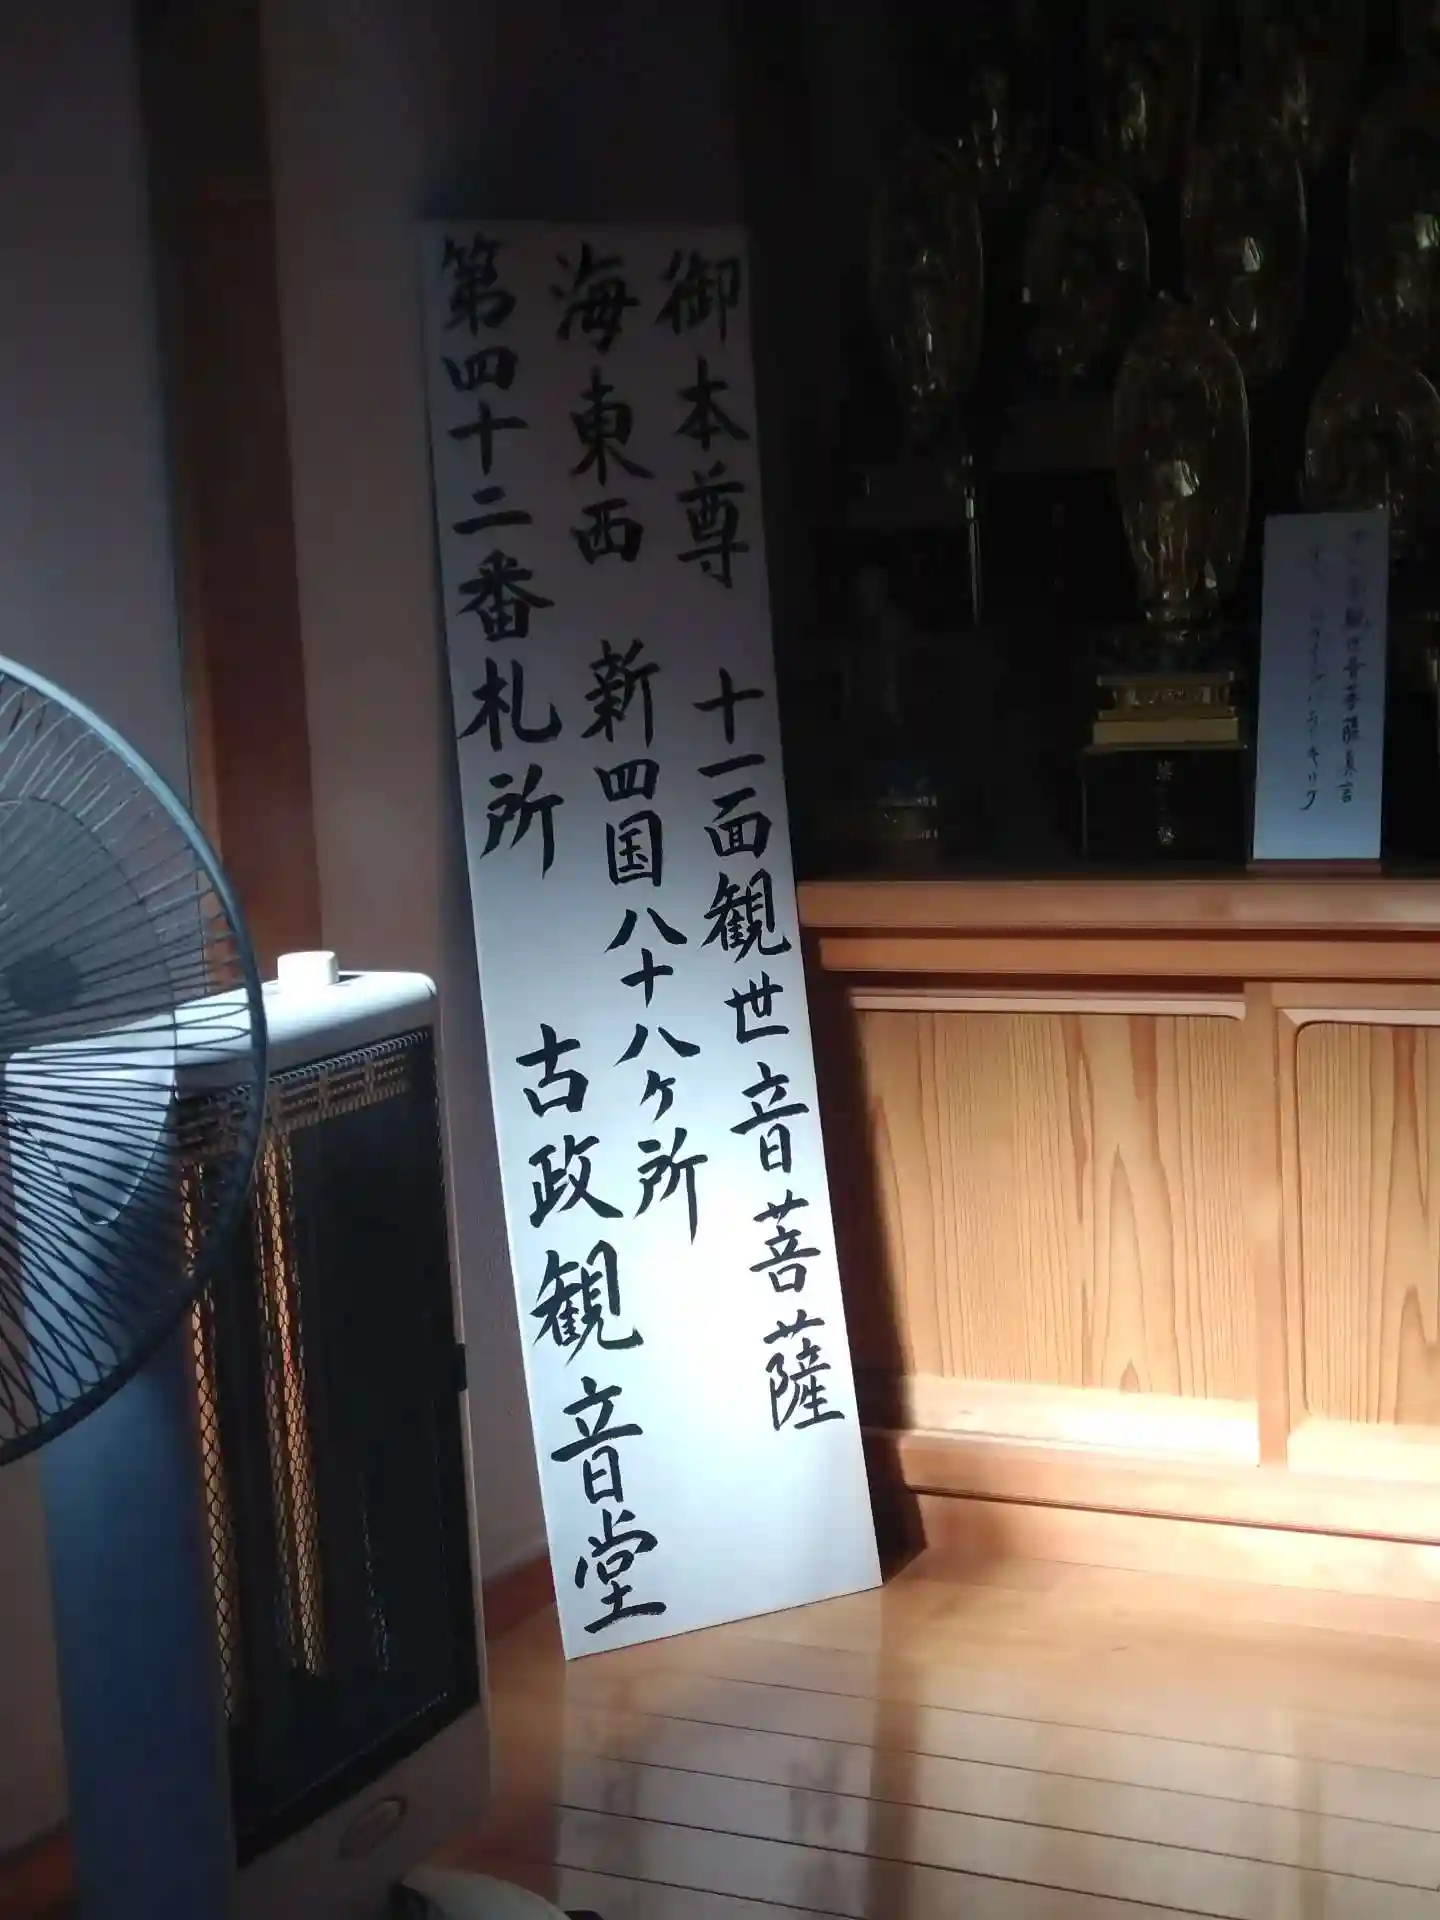 御本尊 十一面観世音菩薩
海東西 新四国八十八ヶ所
第四十二番札所 古政観音堂
観世音菩薩真言